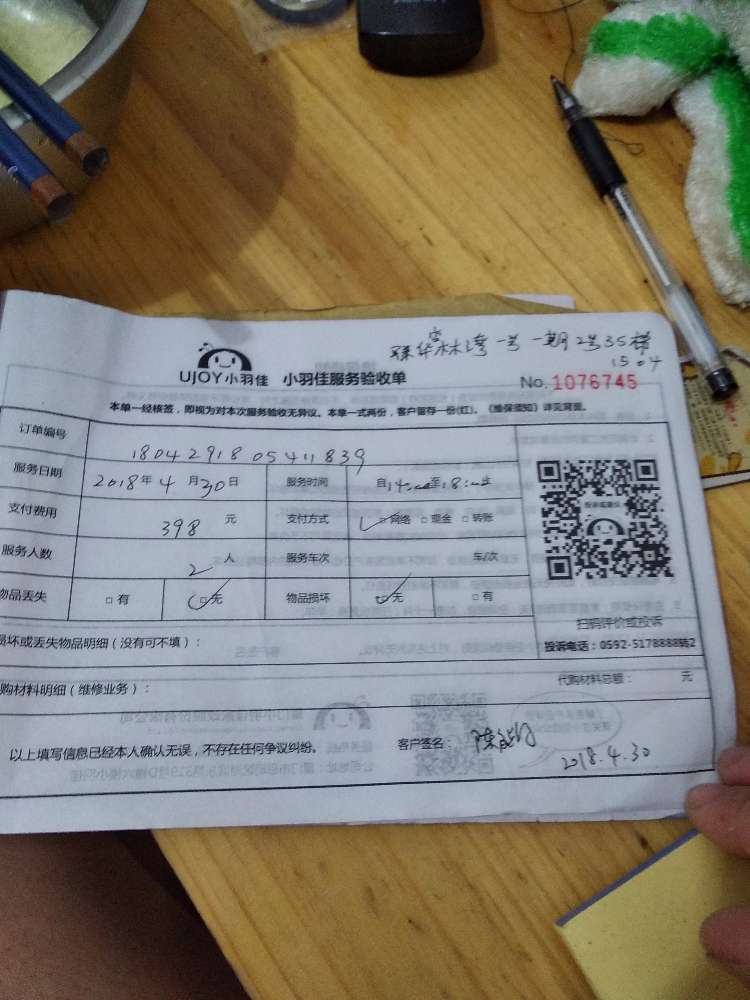 华林湾一号一期2号35梯
1504
UJOY小羽佳 小羽佳服务验收单
No. 1076745
本单一经核签，即视为对本次服务验收无异议。本单一式两份，客户留存一份(红)。《维保须知》详见背面。
订单编号 1804291805411839
服务日期 2018年4月30日 服务时间 自14:00至18:00止
支付费用 398元 支付方式 ☑网络 □现金 □转账
服务人数 2人 服务车次 车/次
物品丢失 □有 ☑无 物品损坏 ☑无 □有
扫码评价或投诉
投诉电话：0592-5178888转2
损坏或丢失物品明细（没有可不填）：
购材料明细（维修业务）： 代购材料总额： 元
以上填写信息已经本人确认无误，不存在任何争议纠纷。 客户签名：陈
2018.4.30